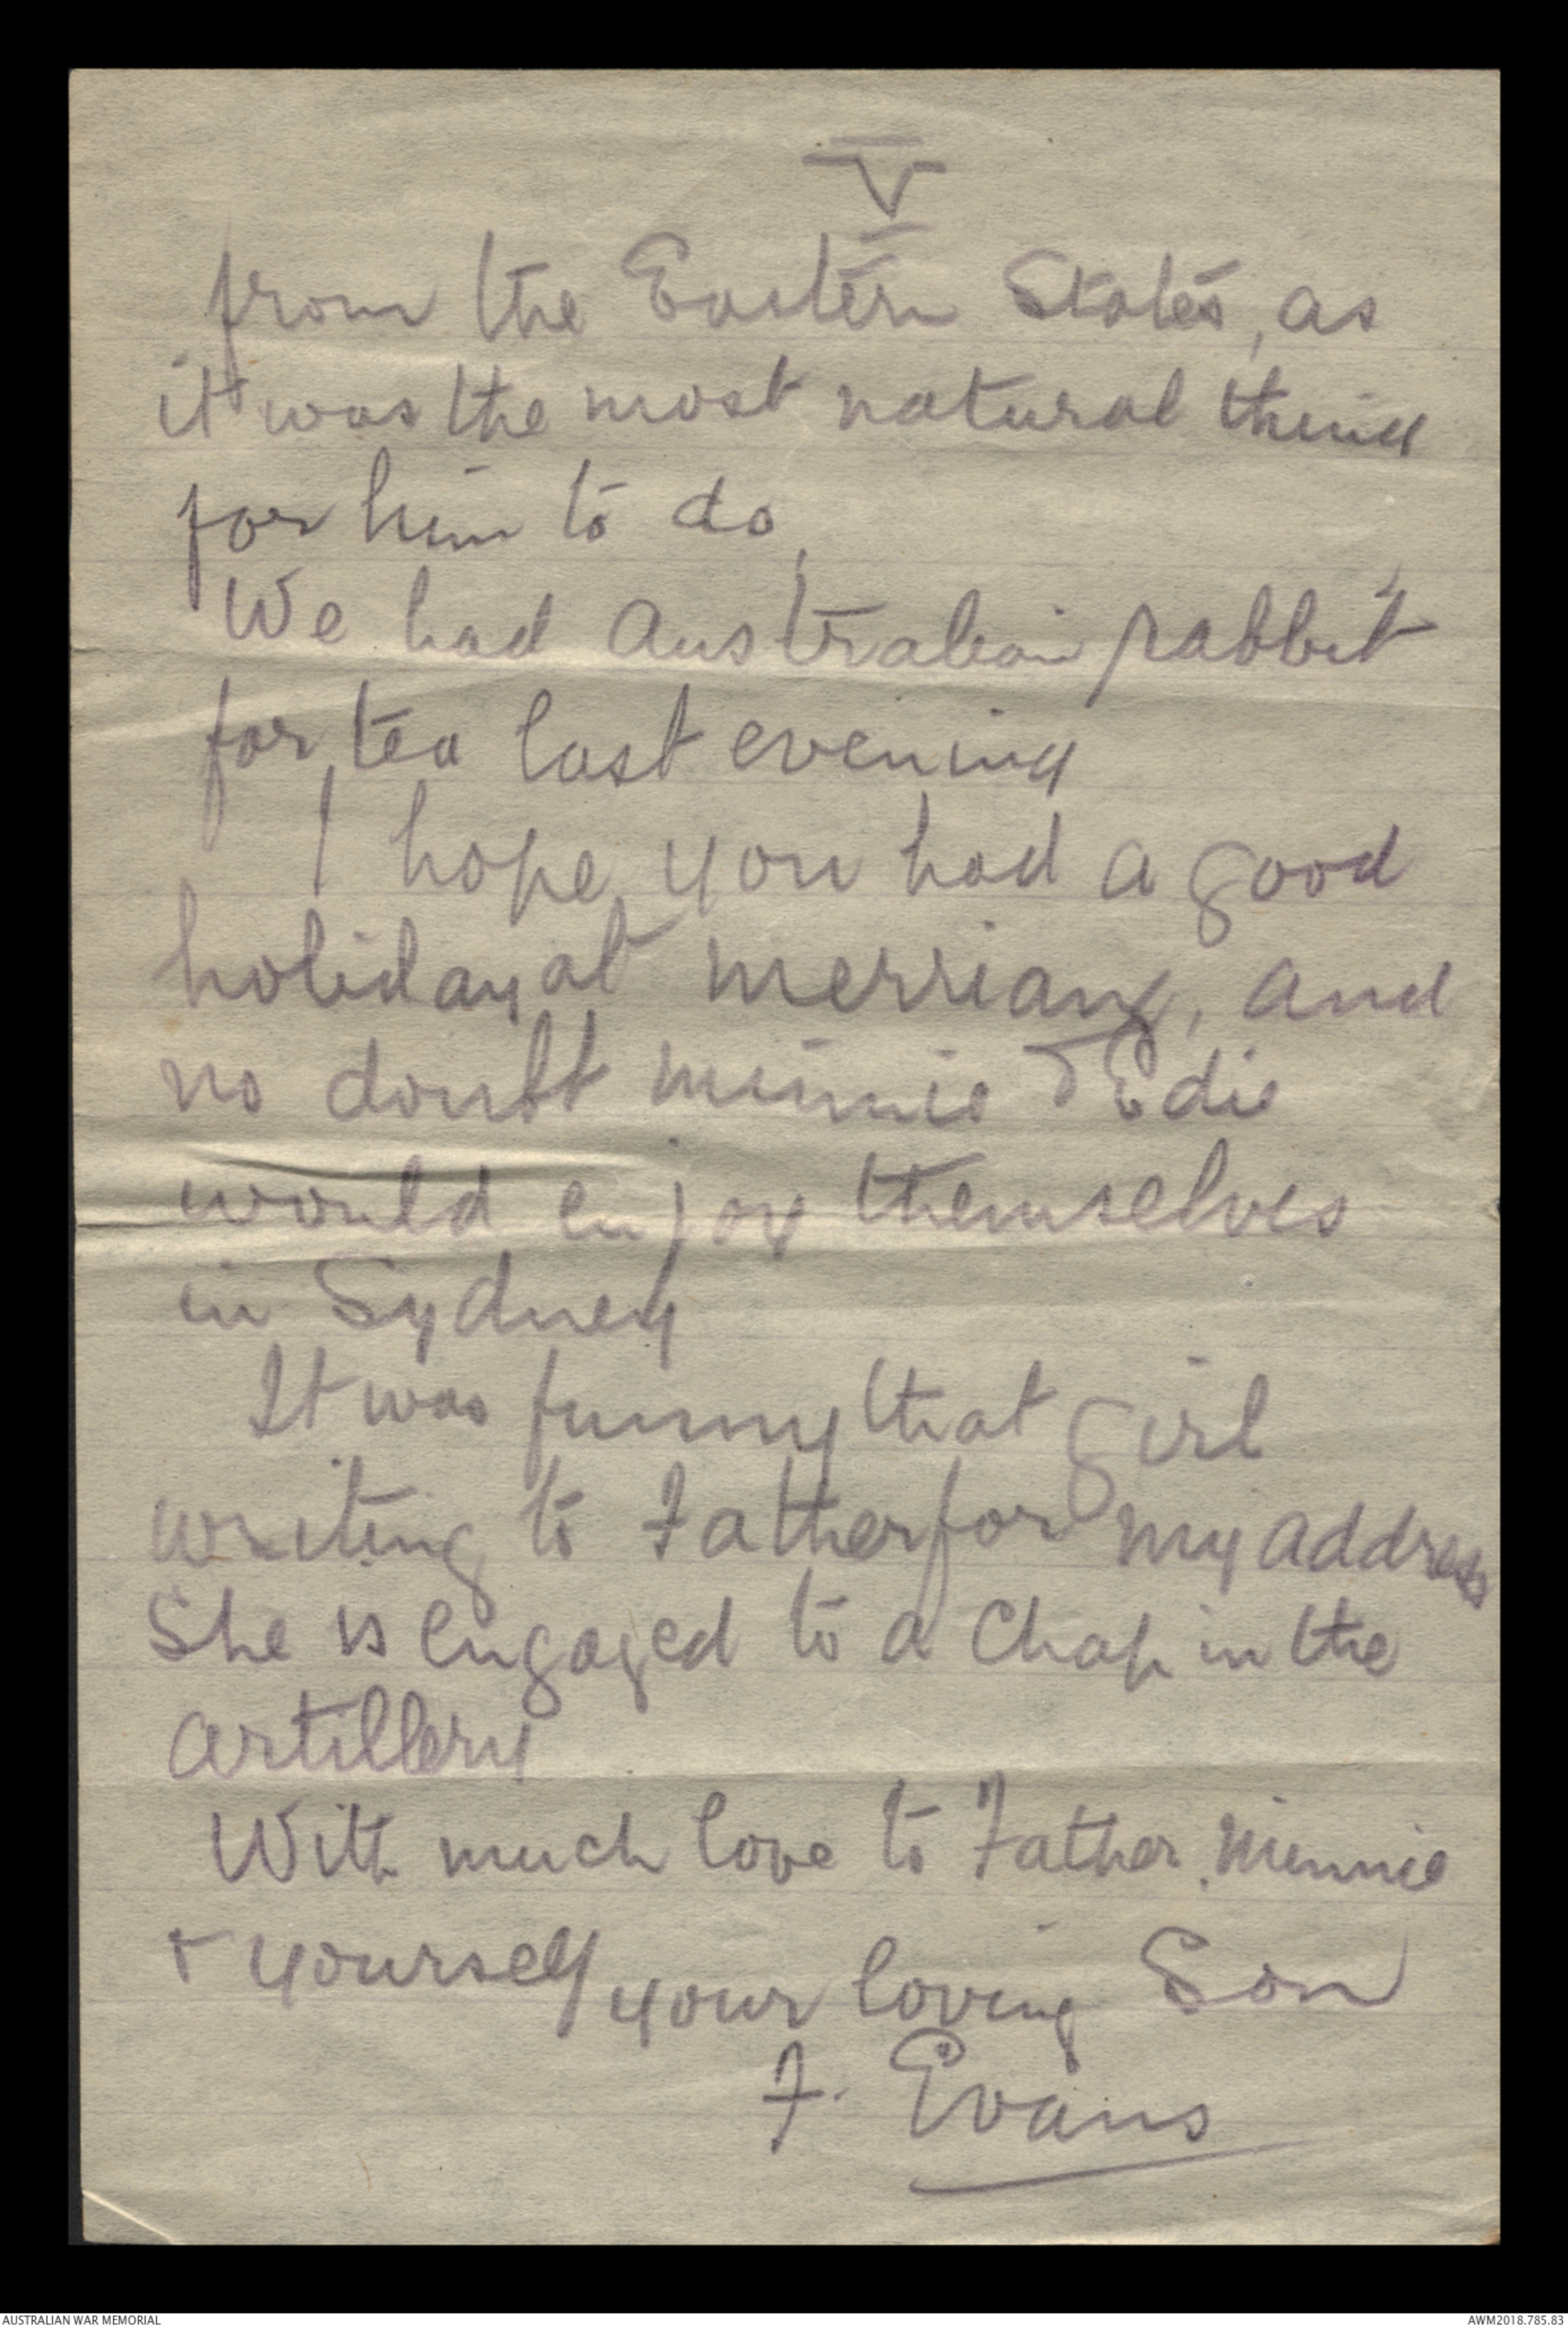 V
from the Eastern States, as
it was the most natural thing
for him to do,
We had Australian rabbit
for tea last evening
I hope you had a good
holiday at Merriang, and
no doubt Minnie & Edie
would enjoy themselves
in Sydney
It was funny that girl
writing to Father for my address
She is engaged to a Chap in the
artillery
With much love to Father, Minnie
& yourself your loving Son
F. Evans
AUSTRALIAN WAR MEMORIAL
AWM2018.785.83